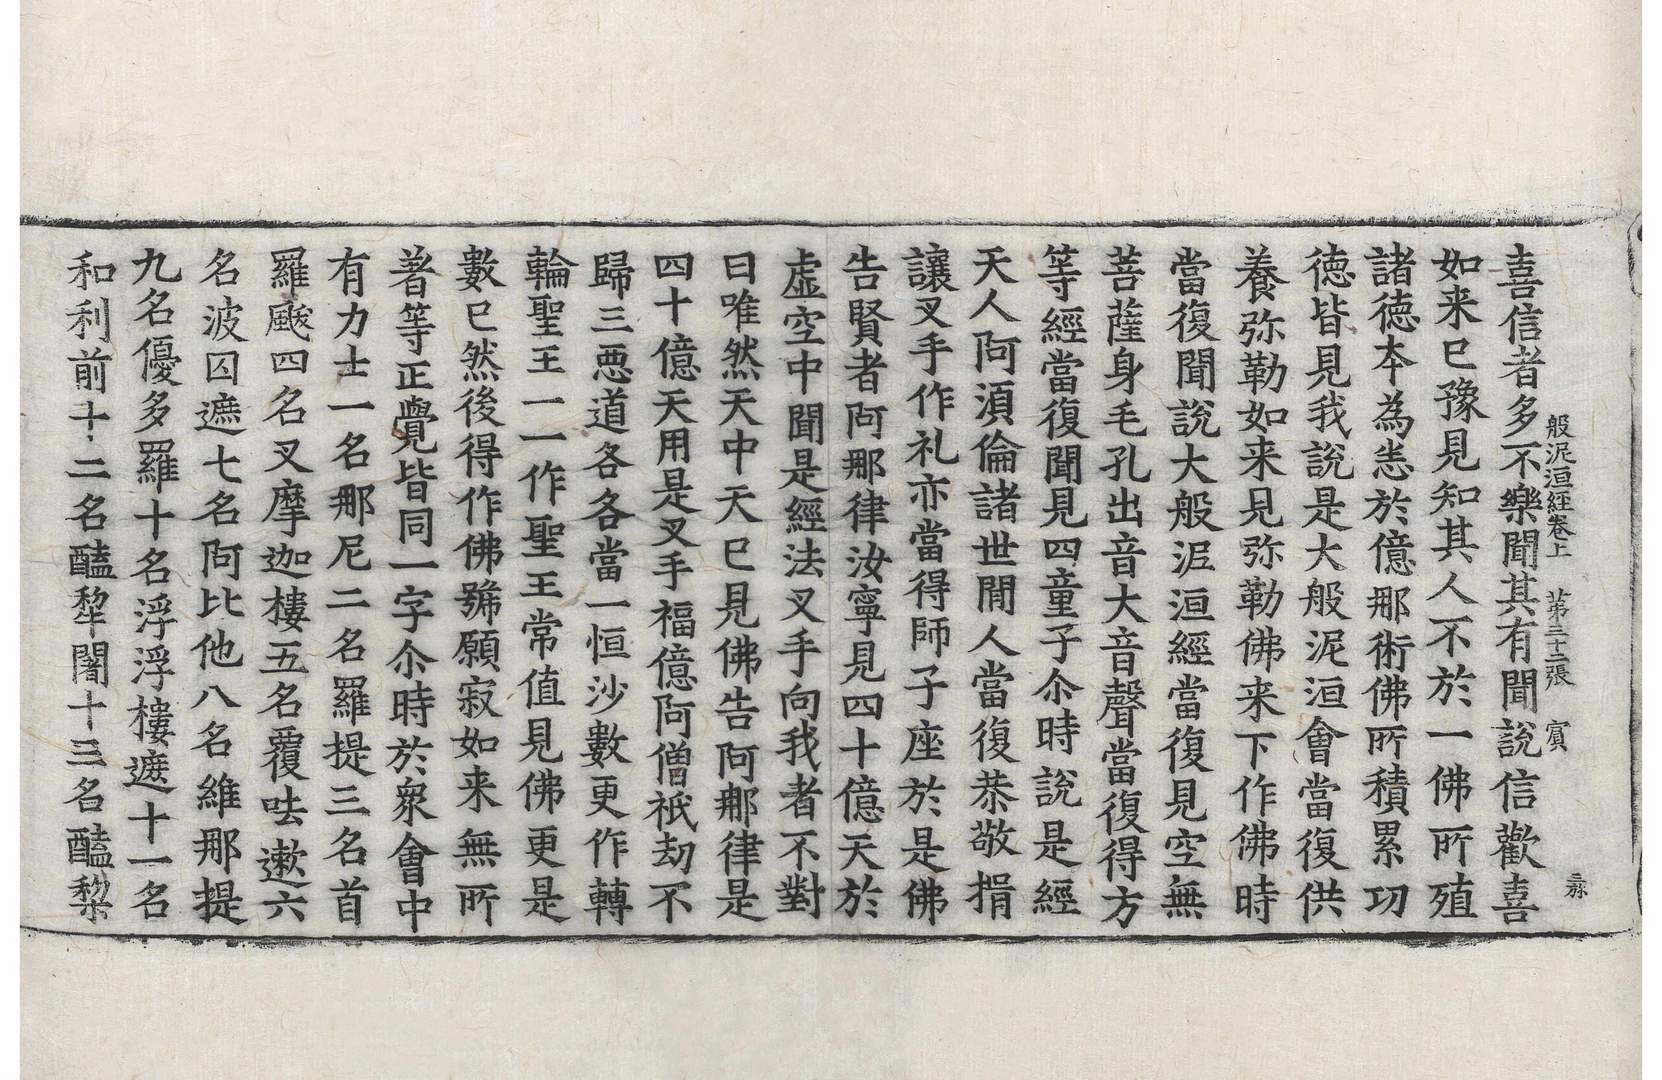 般泥洹經卷上　苐三十二張　賓
喜信者多不樂聞其有聞說信歡喜
如来已豫見知其人不於一佛所殖
諸德本為恙於億那術佛所積累功
徳皆見我說是大般泥洹會當復供
養弥勒如来見弥勒佛来下作佛時
當復聞說大般泥洹經當復見空無
菩薩身毛孔出音大音聲當復得方
等經當復聞見四童子尒時說是經
天人阿湏倫諸世閒人當復恭敬捐
讓叉手作礼亦當得師子座於是佛
告賢者阿那律汝寧見四十億天於
虛空中聞是經法叉手向我者不對
曰唯然天中天已見佛告阿那律是
四十億天用是叉手福億阿僧祇劫不
歸三惡道各各當一恒沙數更作轉
輪聖王一一作聖王常值見佛更是
數已然後得作佛號願寂如来無所
著等正覺皆同一字尒時於衆會中
有力士一名那尼二名羅提三名首
羅颰四名叉摩迦樓五名覆呿漱六
名波囚遮七名阿比他八名維那提
九名優多羅十名浮浮樓遮十一名
和利前十二名醯犂闍十三名醯黎